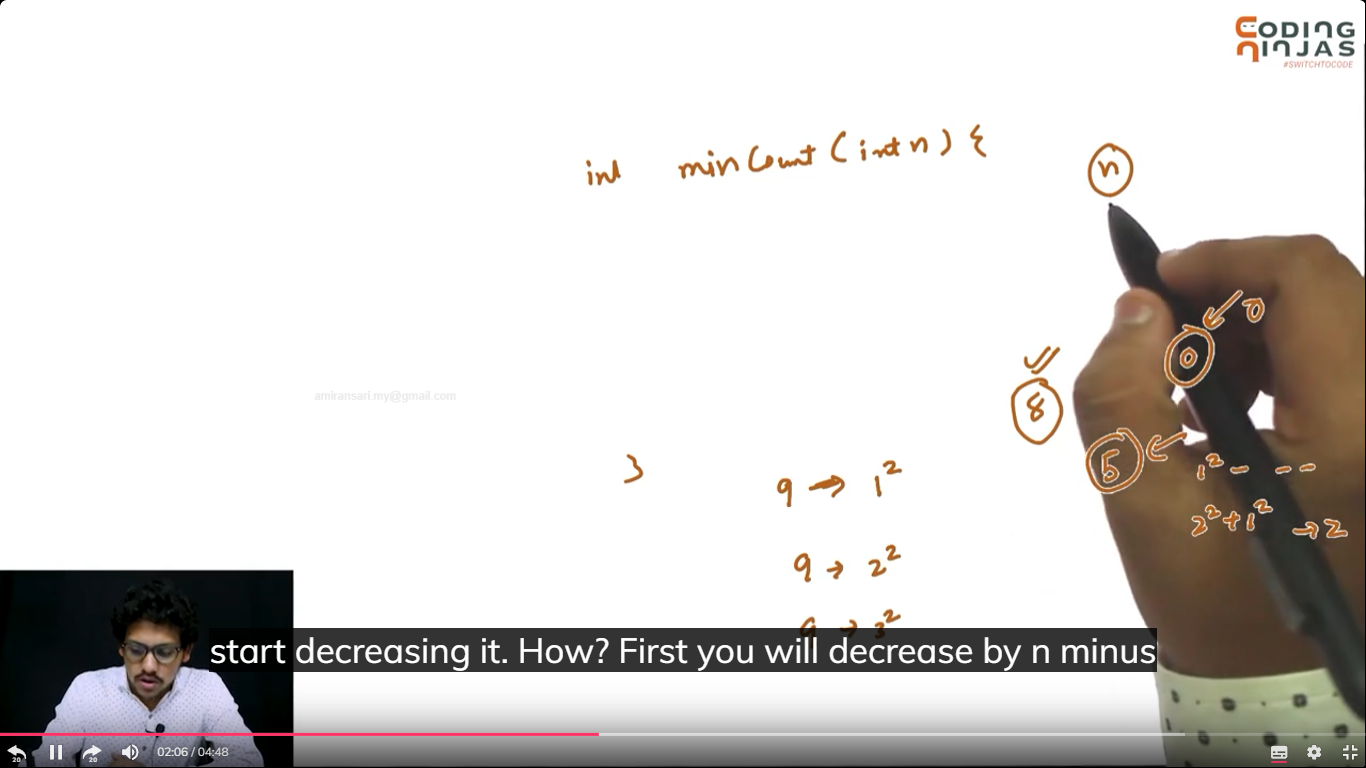 CODING
NINJAS
#SWITCHTOCODE
int minCount (int n) {
n
0
0
8
5
1² - - -
2² + 1² → 2
}
9 → 1²
9 → 2²
9 → 3²
amiransari.my@gmail.com
start decreasing it. How? First you will decrease by n minus
20
20
02:06 / 04:48